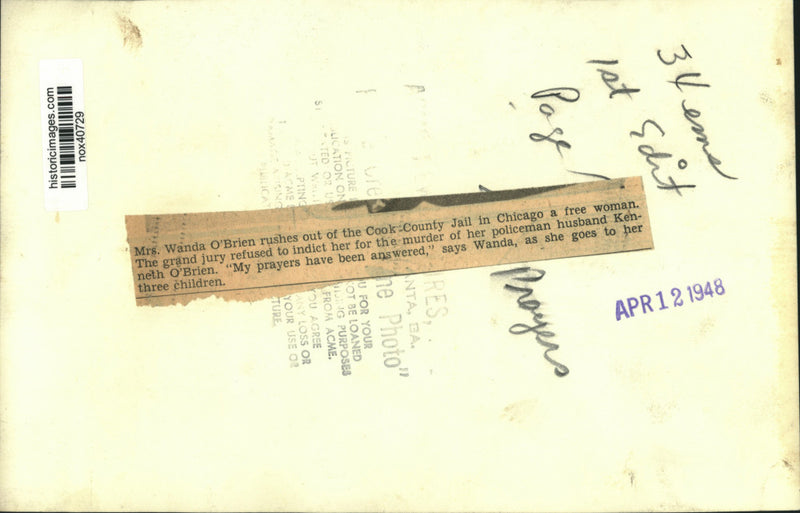 historicimages.com
nox40729
34 ems
1st Edit
Page 1
Mrs. Wanda O'Brien rushes out of the Cook County Jail in Chicago a free woman.
The grand jury refused to indict her for the murder of her policeman husband Ken-
neth O'Brien. "My prayers have been answered," says Wanda, as she goes to her
three children.
Prayers
APR 12 1948
RES,
NTA, GA.
ne Photo"
FOR YOUR
NOT BE LOANED
PURPOSES
FROM ACME.
YOU AGREE
ANY LOSS OR
YOUR USE OR
TURE.